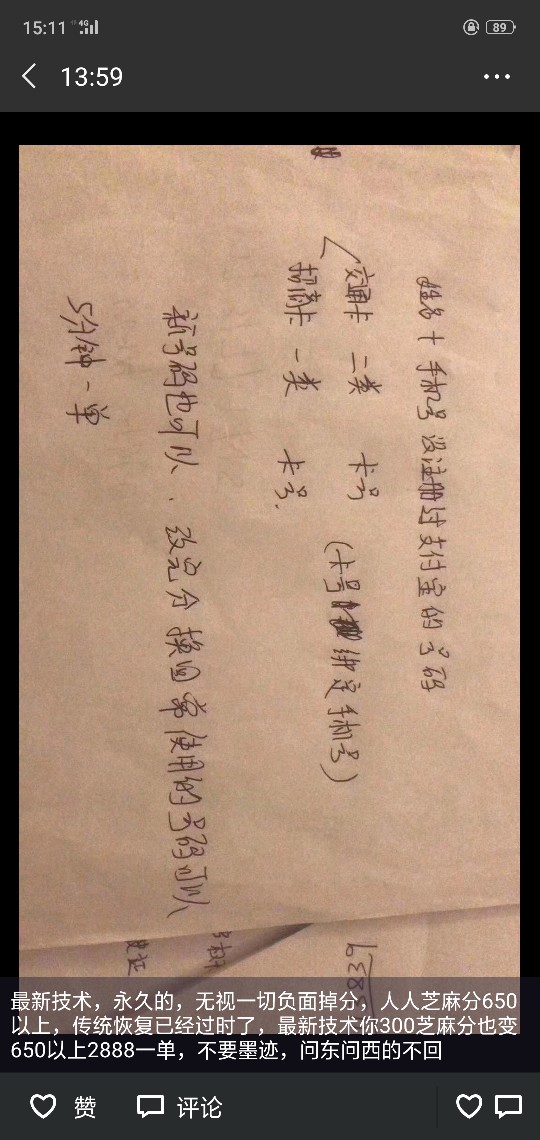 15:11
4G
89
13:59
姓名+手机号没注册过支付宝的号码
交通卡 二类 卡号
(卡号绑定手机号)
招商卡 一类 卡号.
新号码也可以、改完分换回常使用的号码可以
5分钟一单
最新技术，永久的，无视一切负面掉分，人人芝麻分650
以上，传统恢复已经过时了，最新技术你300芝麻分也变
650以上2888一单，不要墨迹，问东问西的不回
赞
评论